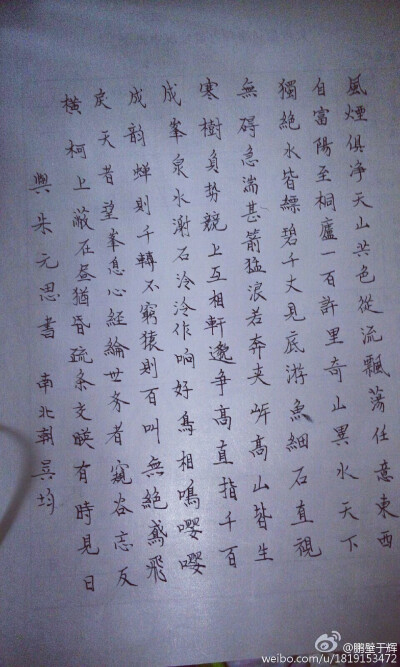 風煙俱净天山共色從流飄蕩任意東西
自富陽至桐廬一百許里奇山異水天下
獨絶水皆縹碧千丈見底游魚細石直視
無碍急湍甚箭猛浪若奔夹岸高山皆生
寒樹負势競上互相軒邈争高直指千百
成峯泉水激石泠泠作响好鳥相鳴嚶嚶
成韵蝉則千轉不窮猿則百叫無絶鳶飛
戾天者望峯息心經綸世务者窺谷忘反
横柯上蔽在昼猶昏疏条交映有時見日
與朱元思書 南北朝 吴均
@鵬璧于辉
weibo.com/u/1819153472